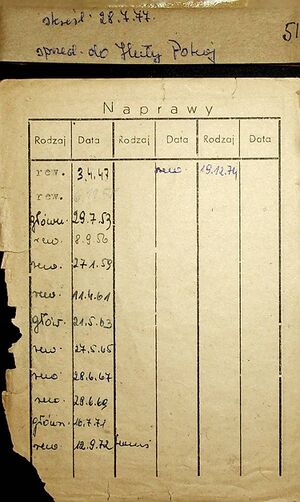 skreśl. 28.7.77.
sprzed. do Huty Pokój
51
Naprawy
Rodzaj Data Rodzaj Data Rodzaj Data
rew. 3.4.47 rew. 19.12.74
rew.
główn. 29.7.53
rew. 8.9.56
rew. 27.1.59
rew. 11.4.61
głów. 21.5.63
rew. 27.5.65
rew. 28.6.67
rew. 28.6.69
główn. 16.7.71
rew. 12.9.72